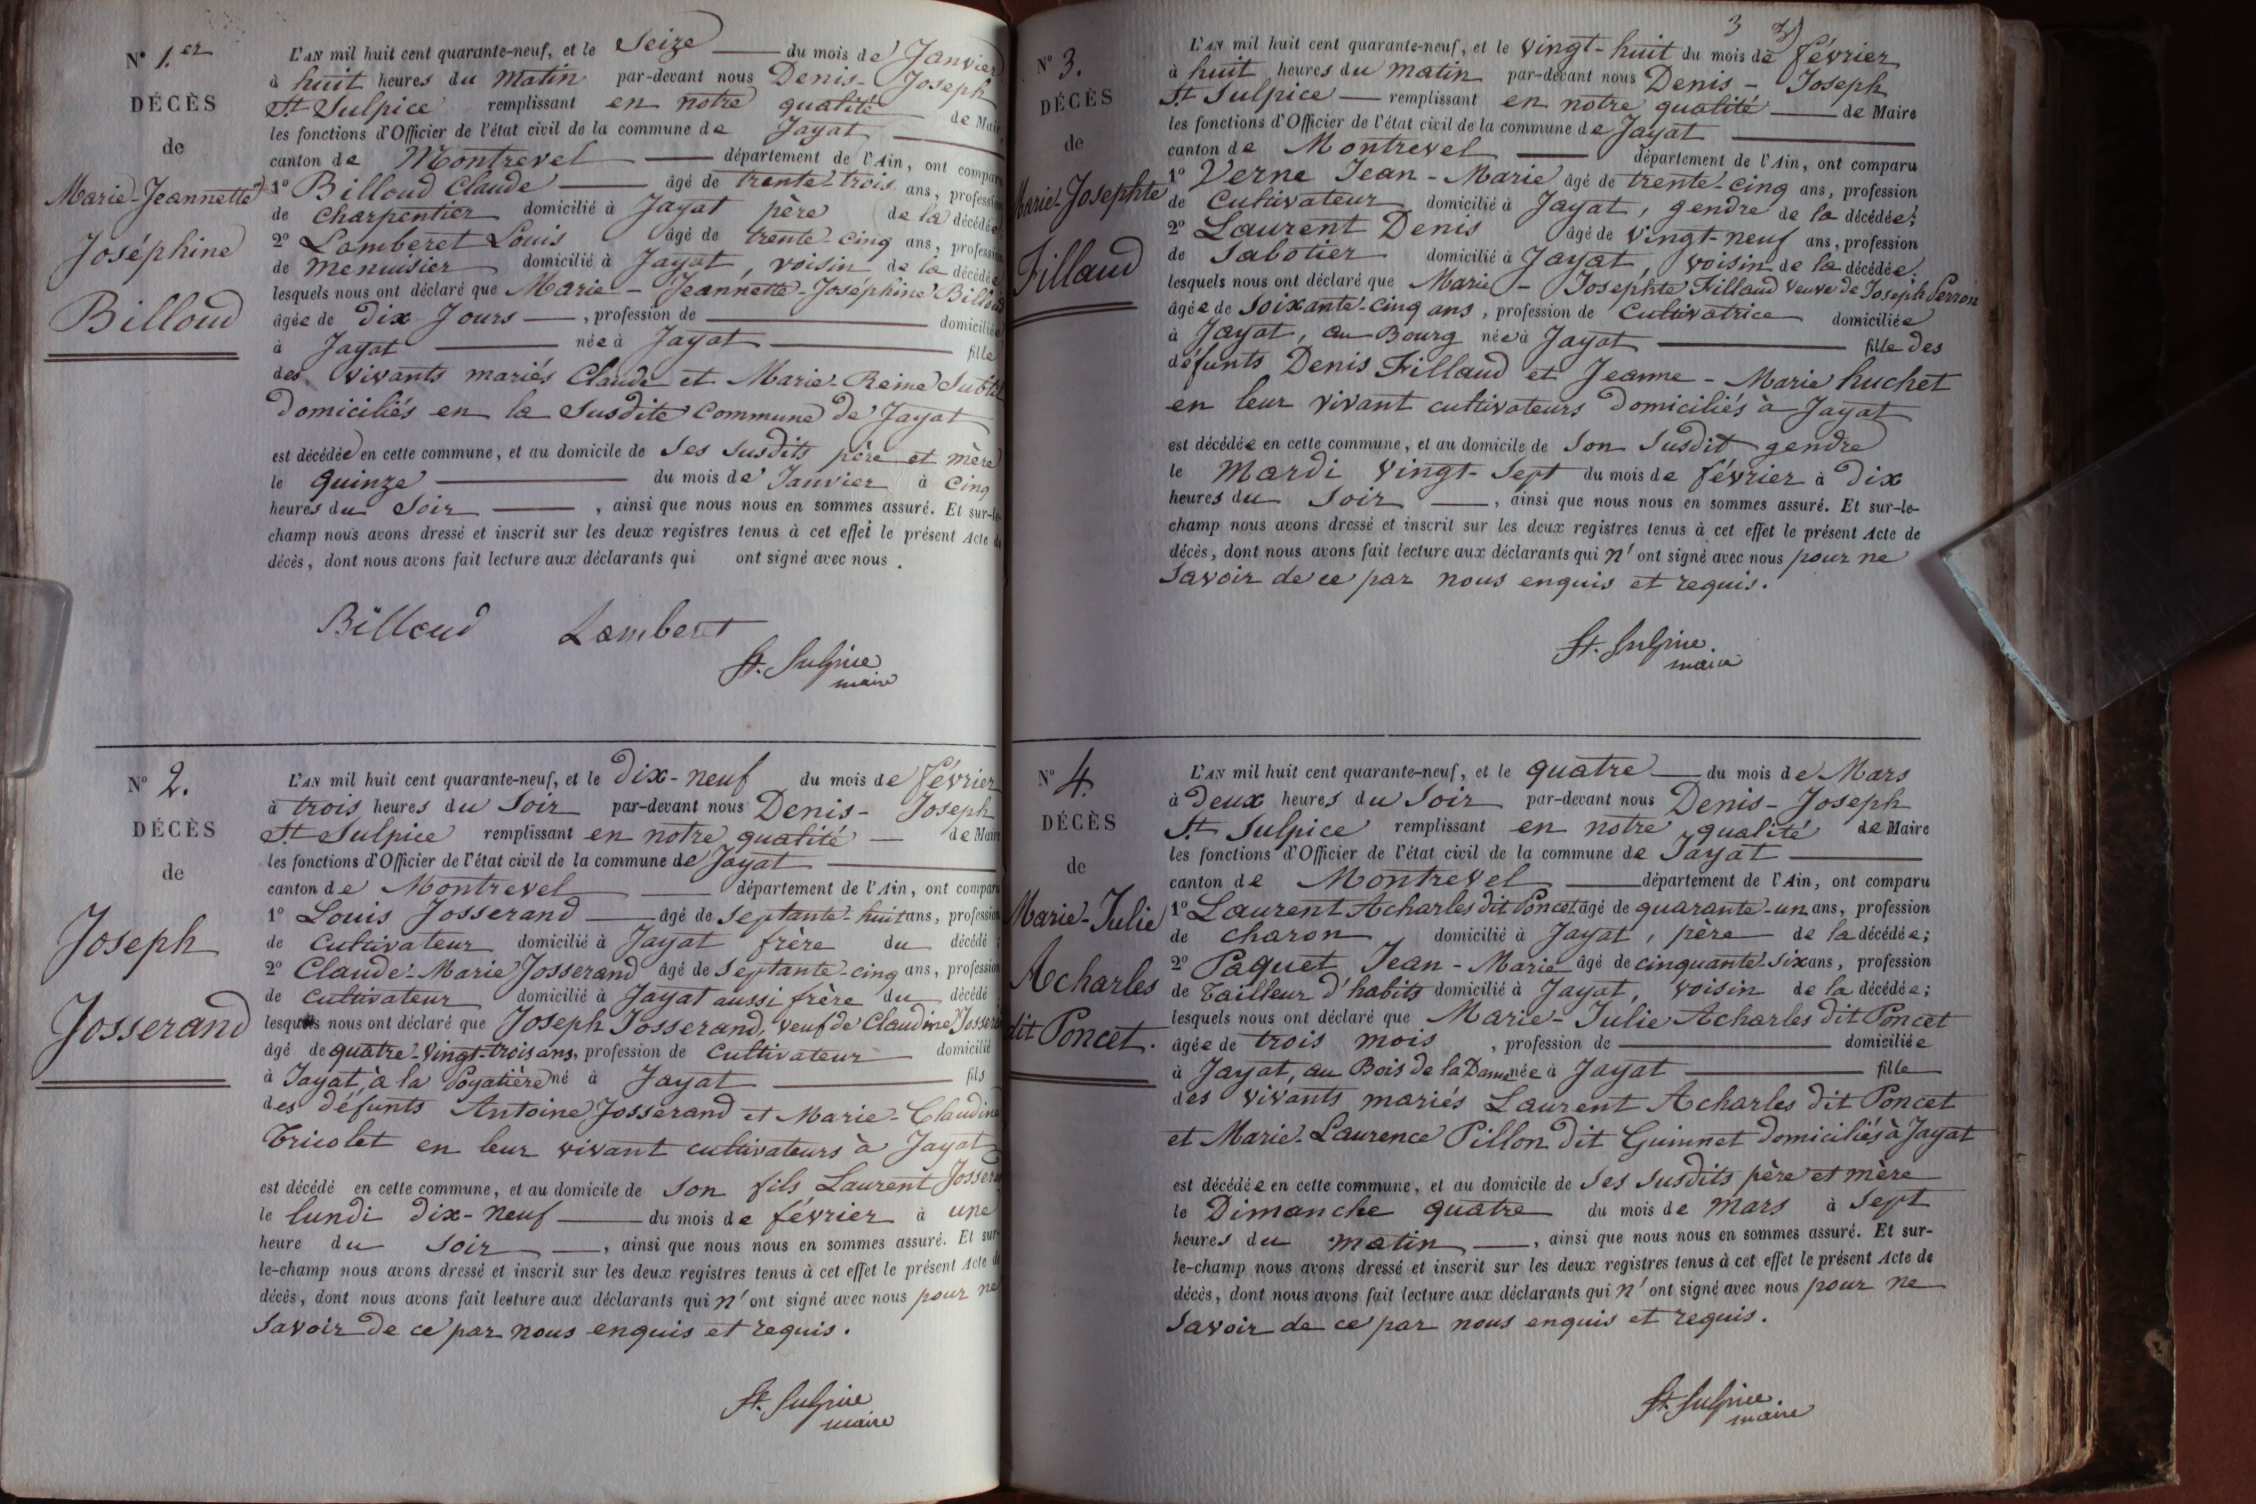 N° 1.er
DÉCÈS
de
Marie-Jeannette
Joséphine
Billoud
L'AN mil huit cent quarante-neuf, et le Seize du mois de Janvier
à huit heures du matin par-devant nous Denis-Joseph
St Sulpice remplissant en notre qualité de Maire
les fonctions d'Officier de l'état civil de la commune de Jayat
canton de Montrevel département de l'Ain, ont comparu
1° Billoud Claude âgé de trente-trois ans, profession
de charpentier domicilié à Jayat père de la décédée
2° Lamberet Louis âgé de trente-cinq ans, profession
de menuisier domicilié à Jayat, voisin de la décédée
lesquels nous ont déclaré que Marie-Jeannette-Joséphine Billoud
âgée de dix Jours, profession de domiciliée
à Jayat née à Jayat fille
des vivants mariés Claude et Marie-Reine
domiciliés en la susdite commune de Jayat
est décédée en cette commune, et au domicile de ses susdits père et mère
le quinze du mois de Janvier à cinq
heures du Soir, ainsi que nous nous en sommes assuré. Et sur-le-
champ nous avons dressé et inscrit sur les deux registres tenus à cet effet le présent Acte de
décès, dont nous avons fait lecture aux déclarants qui ont signé avec nous.
Billoud Lamberet
St. Sulpice
maire
N° 2.
DÉCÈS
de
Joseph
Josserand
L'AN mil huit cent quarante-neuf, et le dix-neuf du mois de février
à trois heures du Soir par-devant nous Denis-Joseph
St Sulpice remplissant en notre qualité de Maire
les fonctions d'Officier de l'état civil de la commune de Jayat
canton de Montrevel département de l'Ain, ont comparu
1° Louis Josserand âgé de septante-huit ans, profession
de cultivateur domicilié à Jayat frère du décédé;
2° Claude-Marie Josserand âgé de septante-cinq ans, profession
de cultivateur domicilié à Jayat aussi frère du décédé
lesquels nous ont déclaré que Joseph Josserand, veuf de Claudine Josserand
âgé de quatre-vingt-trois ans, profession de cultivateur domicilié
à Jayat, à la Poyatière né à Jayat fils
des défunts Antoine Josserand et Marie-Claudine
Tricolet en leur vivant cultivateurs à Jayat
est décédé en cette commune, et au domicile de son fils Laurent Josserand
le lundi dix-neuf du mois de février à une
heure du Soir, ainsi que nous nous en sommes assuré. Et sur-
le-champ nous avons dressé et inscrit sur les deux registres tenus à cet effet le présent Acte de
décès, dont nous avons fait lecture aux déclarants qui n'ont signé avec nous pour ne
savoir de ce par nous enquis et requis.
St. Sulpice
maire
3
N° 3.
DÉCÈS
de
Marie-Josephte
Fillaud
L'AN mil huit cent quarante-neuf, et le vingt-huit du mois de février
à huit heures du matin par-devant nous Denis-Joseph
St Sulpice remplissant en notre qualité de Maire
les fonctions d'Officier de l'état civil de la commune de Jayat
canton de Montrevel département de l'Ain, ont comparu
1° Verne Jean-Marie âgé de trente-cinq ans, profession
de Cultivateur domicilié à Jayat, gendre de la décédée;
2° Laurent Denis âgé de vingt-neuf ans, profession
de Sabotier domicilié à Jayat, voisin de la décédée.
lesquels nous ont déclaré que Marie-Josephte Fillaud veuve de Joseph Perron
âgée de soixante-cinq ans, profession de Cultivatrice domiciliée
à Jayat, au Bourg née à Jayat fille des
défunts Denis Fillaud et Jeanne-Marie huchet
en leur vivant cultivateurs domiciliés à Jayat
est décédée en cette commune, et au domicile de son susdit gendre
le Mardi vingt-sept du mois de février à dix
heures du Soir, ainsi que nous nous en sommes assuré. Et sur-le-
champ nous avons dressé et inscrit sur les deux registres tenus à cet effet le présent Acte de
décès, dont nous avons fait lecture aux déclarants qui n'ont signé avec nous pour ne
savoir de ce par nous enquis et requis.
St. Sulpice.
maire
N° 4.
DÉCÈS
de
Marie-Julie
Acharles
dit Poncet.
L'AN mil huit cent quarante-neuf, et le quatre du mois de Mars
à Deux heures du Soir par-devant nous Denis-Joseph
St Sulpice remplissant en notre qualité de Maire
les fonctions d'Officier de l'état civil de la commune de Jayat
canton de Montrevel département de l'Ain, ont comparu
1° Laurent Acharles dit Poncet âgé de quarante-un ans, profession
de charon domicilié à Jayat, père de la décédée;
2° Paquet Jean-Marie âgé de cinquante-six ans, profession
de Tailleur d'habits domicilié à Jayat, voisin de la décédée;
lesquels nous ont déclaré que Marie-Julie Acharles dit Poncet
âgée de trois mois, profession de domiciliée
à Jayat, au Bois de la Dame née à Jayat fille
des vivants mariés Laurent Acharles dit Poncet
et Marie-Laurence Pillon dit Guinnet domiciliés à Jayat
est décédée en cette commune, et au domicile de ses susdits père et mère
le Dimanche quatre du mois de mars à sept
heures du matin, ainsi que nous nous en sommes assuré. Et sur-
le-champ nous avons dressé et inscrit sur les deux registres tenus à cet effet le présent Acte de
décès, dont nous avons fait lecture aux déclarants qui n'ont signé avec nous pour ne
savoir de ce par nous enquis et requis.
St. Sulpice.
maire